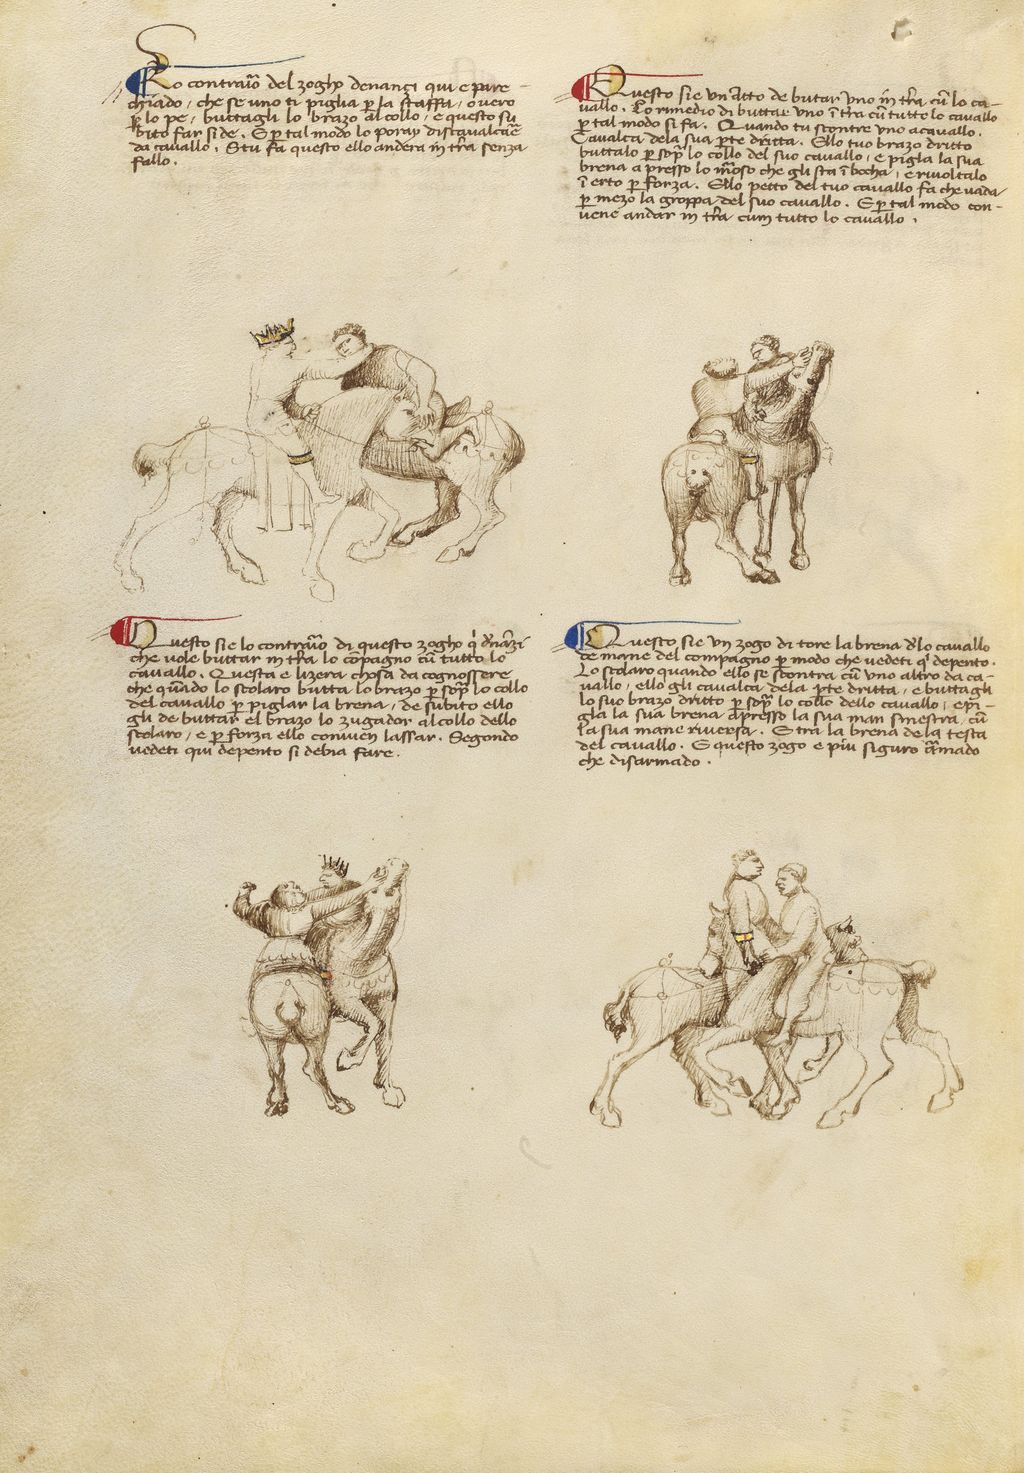 Lo contrario del zoghо denançi qui e pare-
chiado, che se uno ti piglia per la staffa, o vero
per lo pe, buttagli lo brazo al collo, e questo su-
bito far si de. E per tal modo lo poray disçavalcare
da cavallo. Stu fa questo ello andera in terra senza
fallo.
Questo sie un'atto de butar uno in terra cum lo ca-
vallo. Lo rimedio di buttar uno in terra cum tutto lo cavallo
per tal modo si fa. Quando tu scontre uno a cavallo.
Cavalca dela sua parte dritta. E llo tuo brazo dritto
buttalo per sopra lo collo del suo cavallo, e pigla la sua
brena apresso lo morso che gli sta in bocha, e rivoltalo
in erto per forza. E llo petto del tuo cavallo fa che vada
per mezo la groppa del suo cavallo. E per tal modo con-
vene andar in terra cum tutto lo cavallo.
Questo sie lo contrario di questo zogho qui denanzi
che vole buttar in terra lo compagno cum tutto lo
cavallo. Questa e lizera chosa da cognossere
che quando lo scolaro butta lo brazo per sopra lo collo
del cavallo per piglar la brena, de subito ello
gli de buttar el brazo lo zugador al collo dello
scolaro, e per forza ello convien lassar. Segondo
vedeti qui depento si debia fare.
Questo sie un zogo di tore la brena de lo cavallo
de mane del compagno per modo che vedeti qui depento.
Lo scolaro quando ello se scontra cum uno altro da ca-
vallo, ello gli cavalca dela parte dritta, e buttagli
lo suo brazo dritto per sopra lo collo dello cavallo, e pi-
gla la sua brena apresso la sua man sinestra, cum
la sua mane riversa. E tra la brena de la testa
del cavallo. E questo zogo e piu siguro armado
che disarmado.